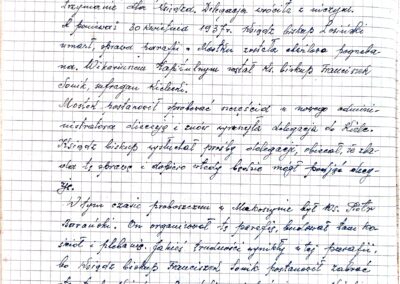 trzymanie dla księdza. Delegacja wróciła z niczym.
A ponieważ 30 kwietnia 1937r. Ksiądz biskup Łosiński
umarł, sprawa parafii - Mostku została całkowicie pogrzeba-
na. Wikariuszem Kapitulnym został ks. biskup Franciszek
Sonik, sufragan Kielecki.
Mostek postanowił spróbować szczęścia u nowego admini-
nistratora diecezji i znów wyruszyła delegacja do Kielc.
Ksiądz biskup wysłuchał prośby delegacji, obiecał, że zba-
da tę sprawę i dopiero wtedy będzie mógł podjąć decy-
zję.
W tym czasie proboszczem w Makoszynie był Ks. Piotr
Barański. On organizował tę parafię, budował tam ko-
ściół i plebanię. Jakieś trudności wynikły w tej parafii,
bo Ksiądz biskup Franciszek Sonik postanowił zabrać